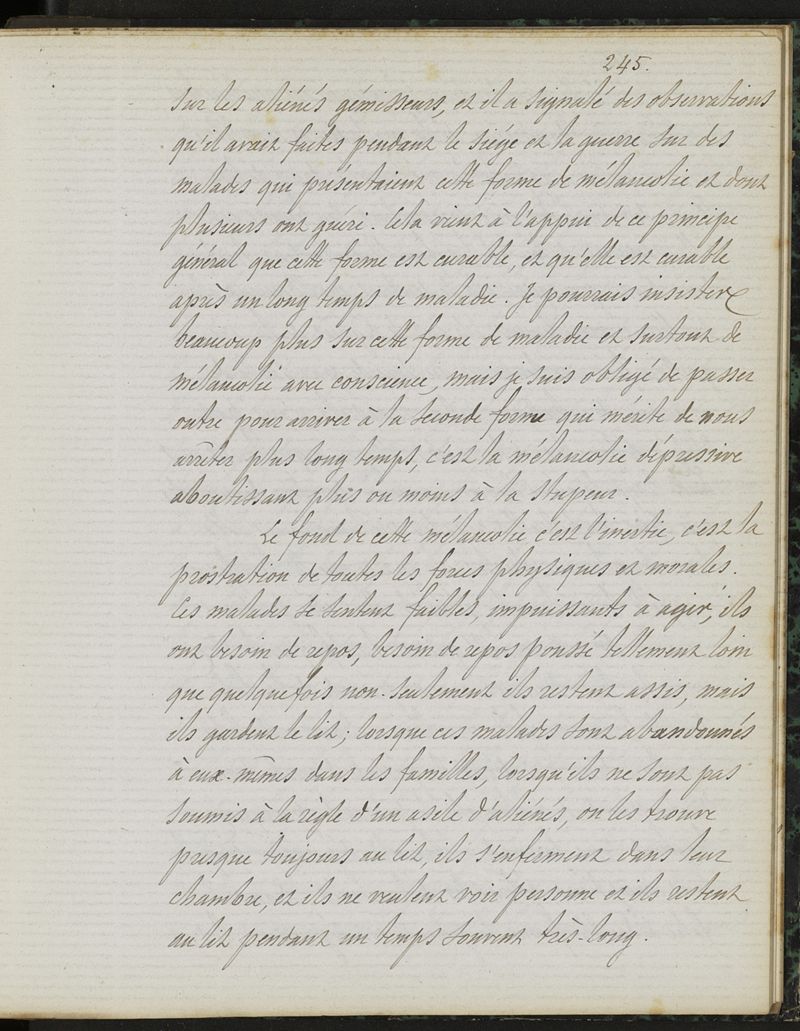 245.
sur les aliénés gémisseurs, et il a signalé des observations
qu'il avait faites pendant le siége et la guerre sur des
malades qui présentaient cette forme de mélancolie et dont
plusieurs ont guéri. Cela vient à l'appui de ce principe
général que cette forme est curable, et qu'elle est curable
après un long temps de maladie. Je pourrais insister
beaucoup plus sur cette forme de maladie et surtout de
mélancolie avec conscience, mais je suis obligé de passer
outre pour arriver à la seconde forme qui mérite de nous
arrêter plus long temps, c'est la mélancolie dépressive
aboutissant plus ou moins à la stupeur.
Le fond de cette mélancolie c'est l'inertie, c'est la
prostration de toutes les forces physiques et morales.
Ces malades se sentent faibles, impuissants à agir, ils
ont besoin de repos, besoin de repos poussé tellement loin
que quelquefois non-seulement ils restent assis, mais
ils gardent le lit; lorsque ces malades sont abandonnés
à eux-mêmes dans les familles, lorsqu'ils ne sont pas
soumis à la règle d'un asile d'aliénés, on les trouve
presque toujours au lit, ils s'enferment dans leur
chambre, et ils ne veulent voir personne et ils restent
au lit pendant un temps souvent très-long.